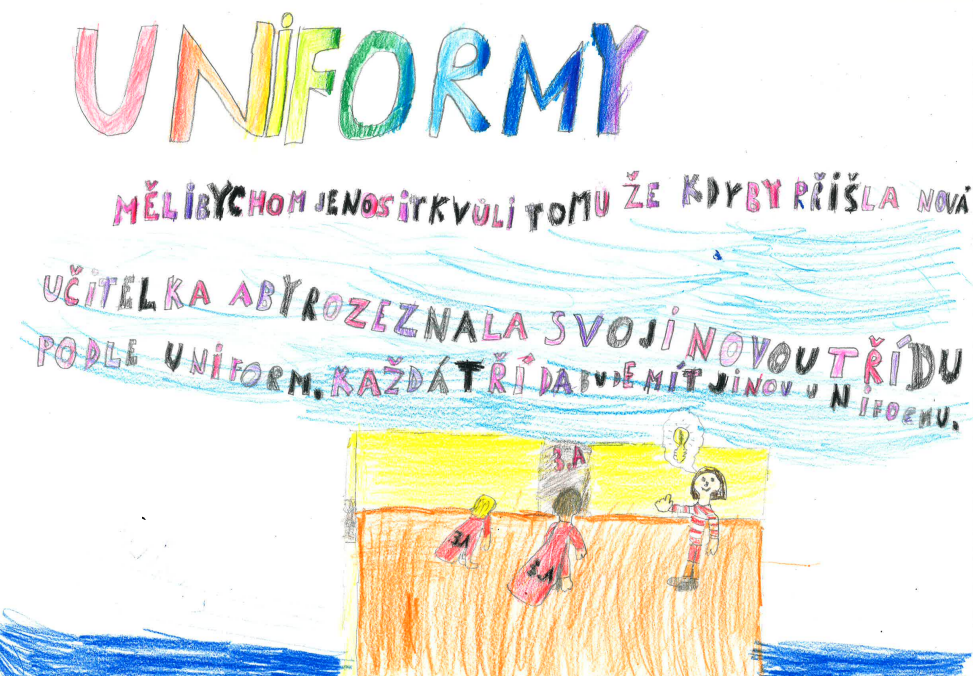 UNiFORMY
MĚLIBYCHOM JENOSiTKVŮLI TOMU ŽE KDYBY PŘiŠLA NOVÁ
UČiTELKA ABYROZEZNALA SVOJi NOVOU TŘÍDU
PODLE UNiFORM. KAŽDÁTŘÍDABUDEMÍTJiNOUUNiFORMU.
3.A
3.A
3.A